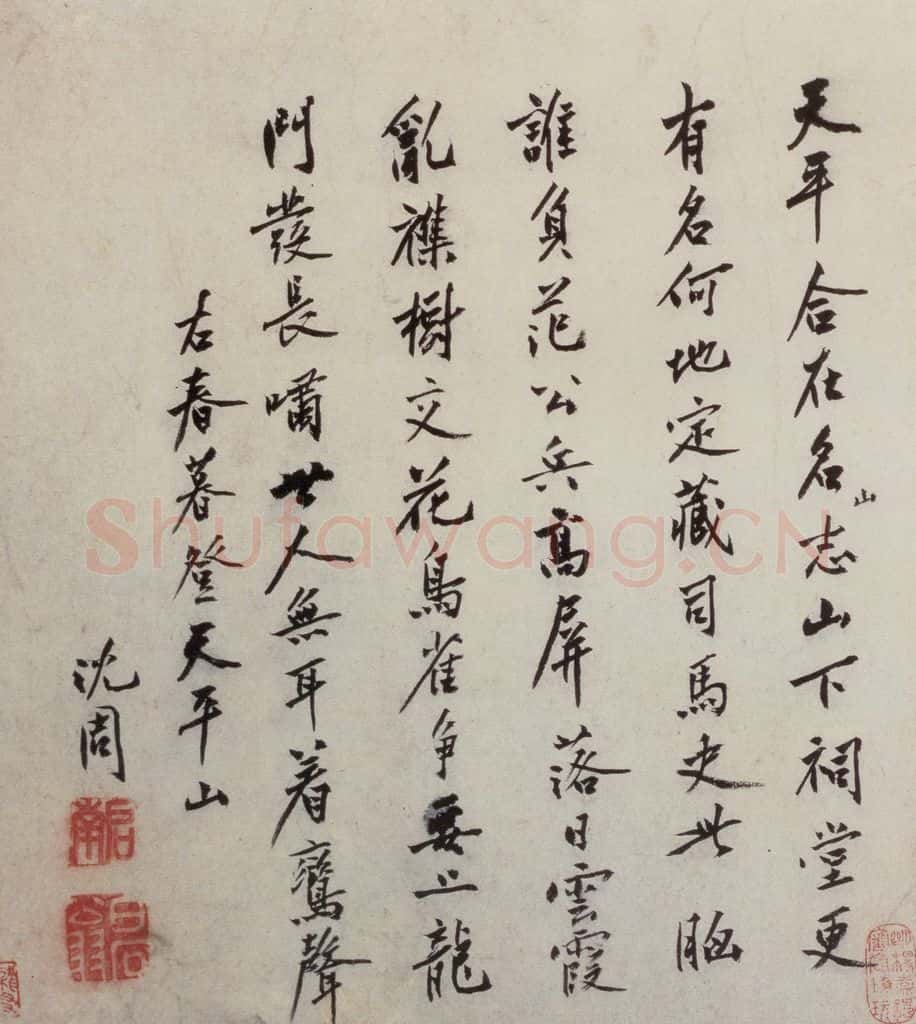 天平合在名山志山下祠堂更
有名何地定藏司馬史此胸
誰負范公兵高屏落日雲霞
亂襍樹交花鳥雀争要上龍
門發長嘯世人無耳着鸞聲
右春暮登天平山
沈周
啓南
白石翁
Shufawang.CN